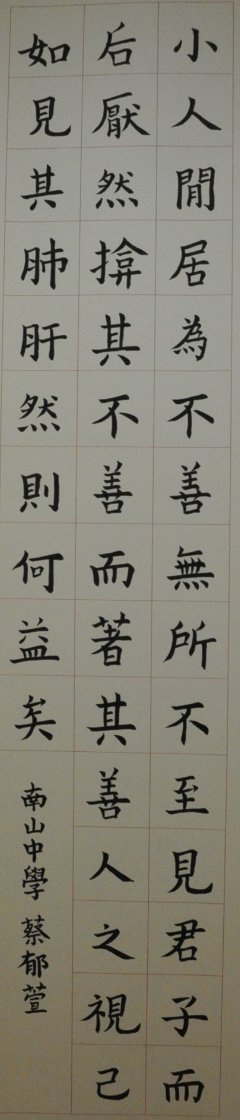 小人閒居為不善無所不至見君子而
后厭然揜其不善而著其善人之視己
如見其肺肝然則何益矣
南山中學 蔡郁萱